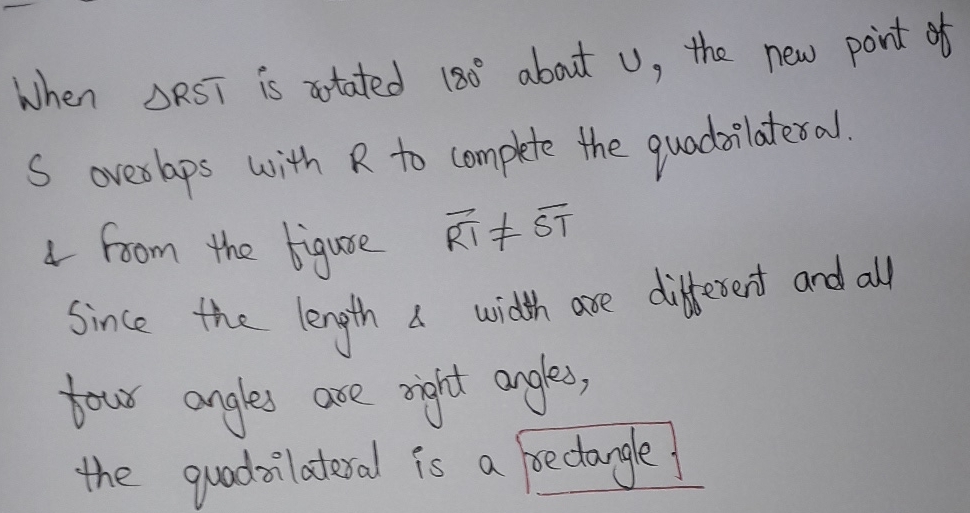 When △RST is rotated 180° about U, the new point of
S overlaps with R to complete the quadrilateral.
& from the figure R̅T̅ ≠ S̅T̅
Since the length & width are different and all
four angles are right angles,
the quadrilateral is a rectangle.